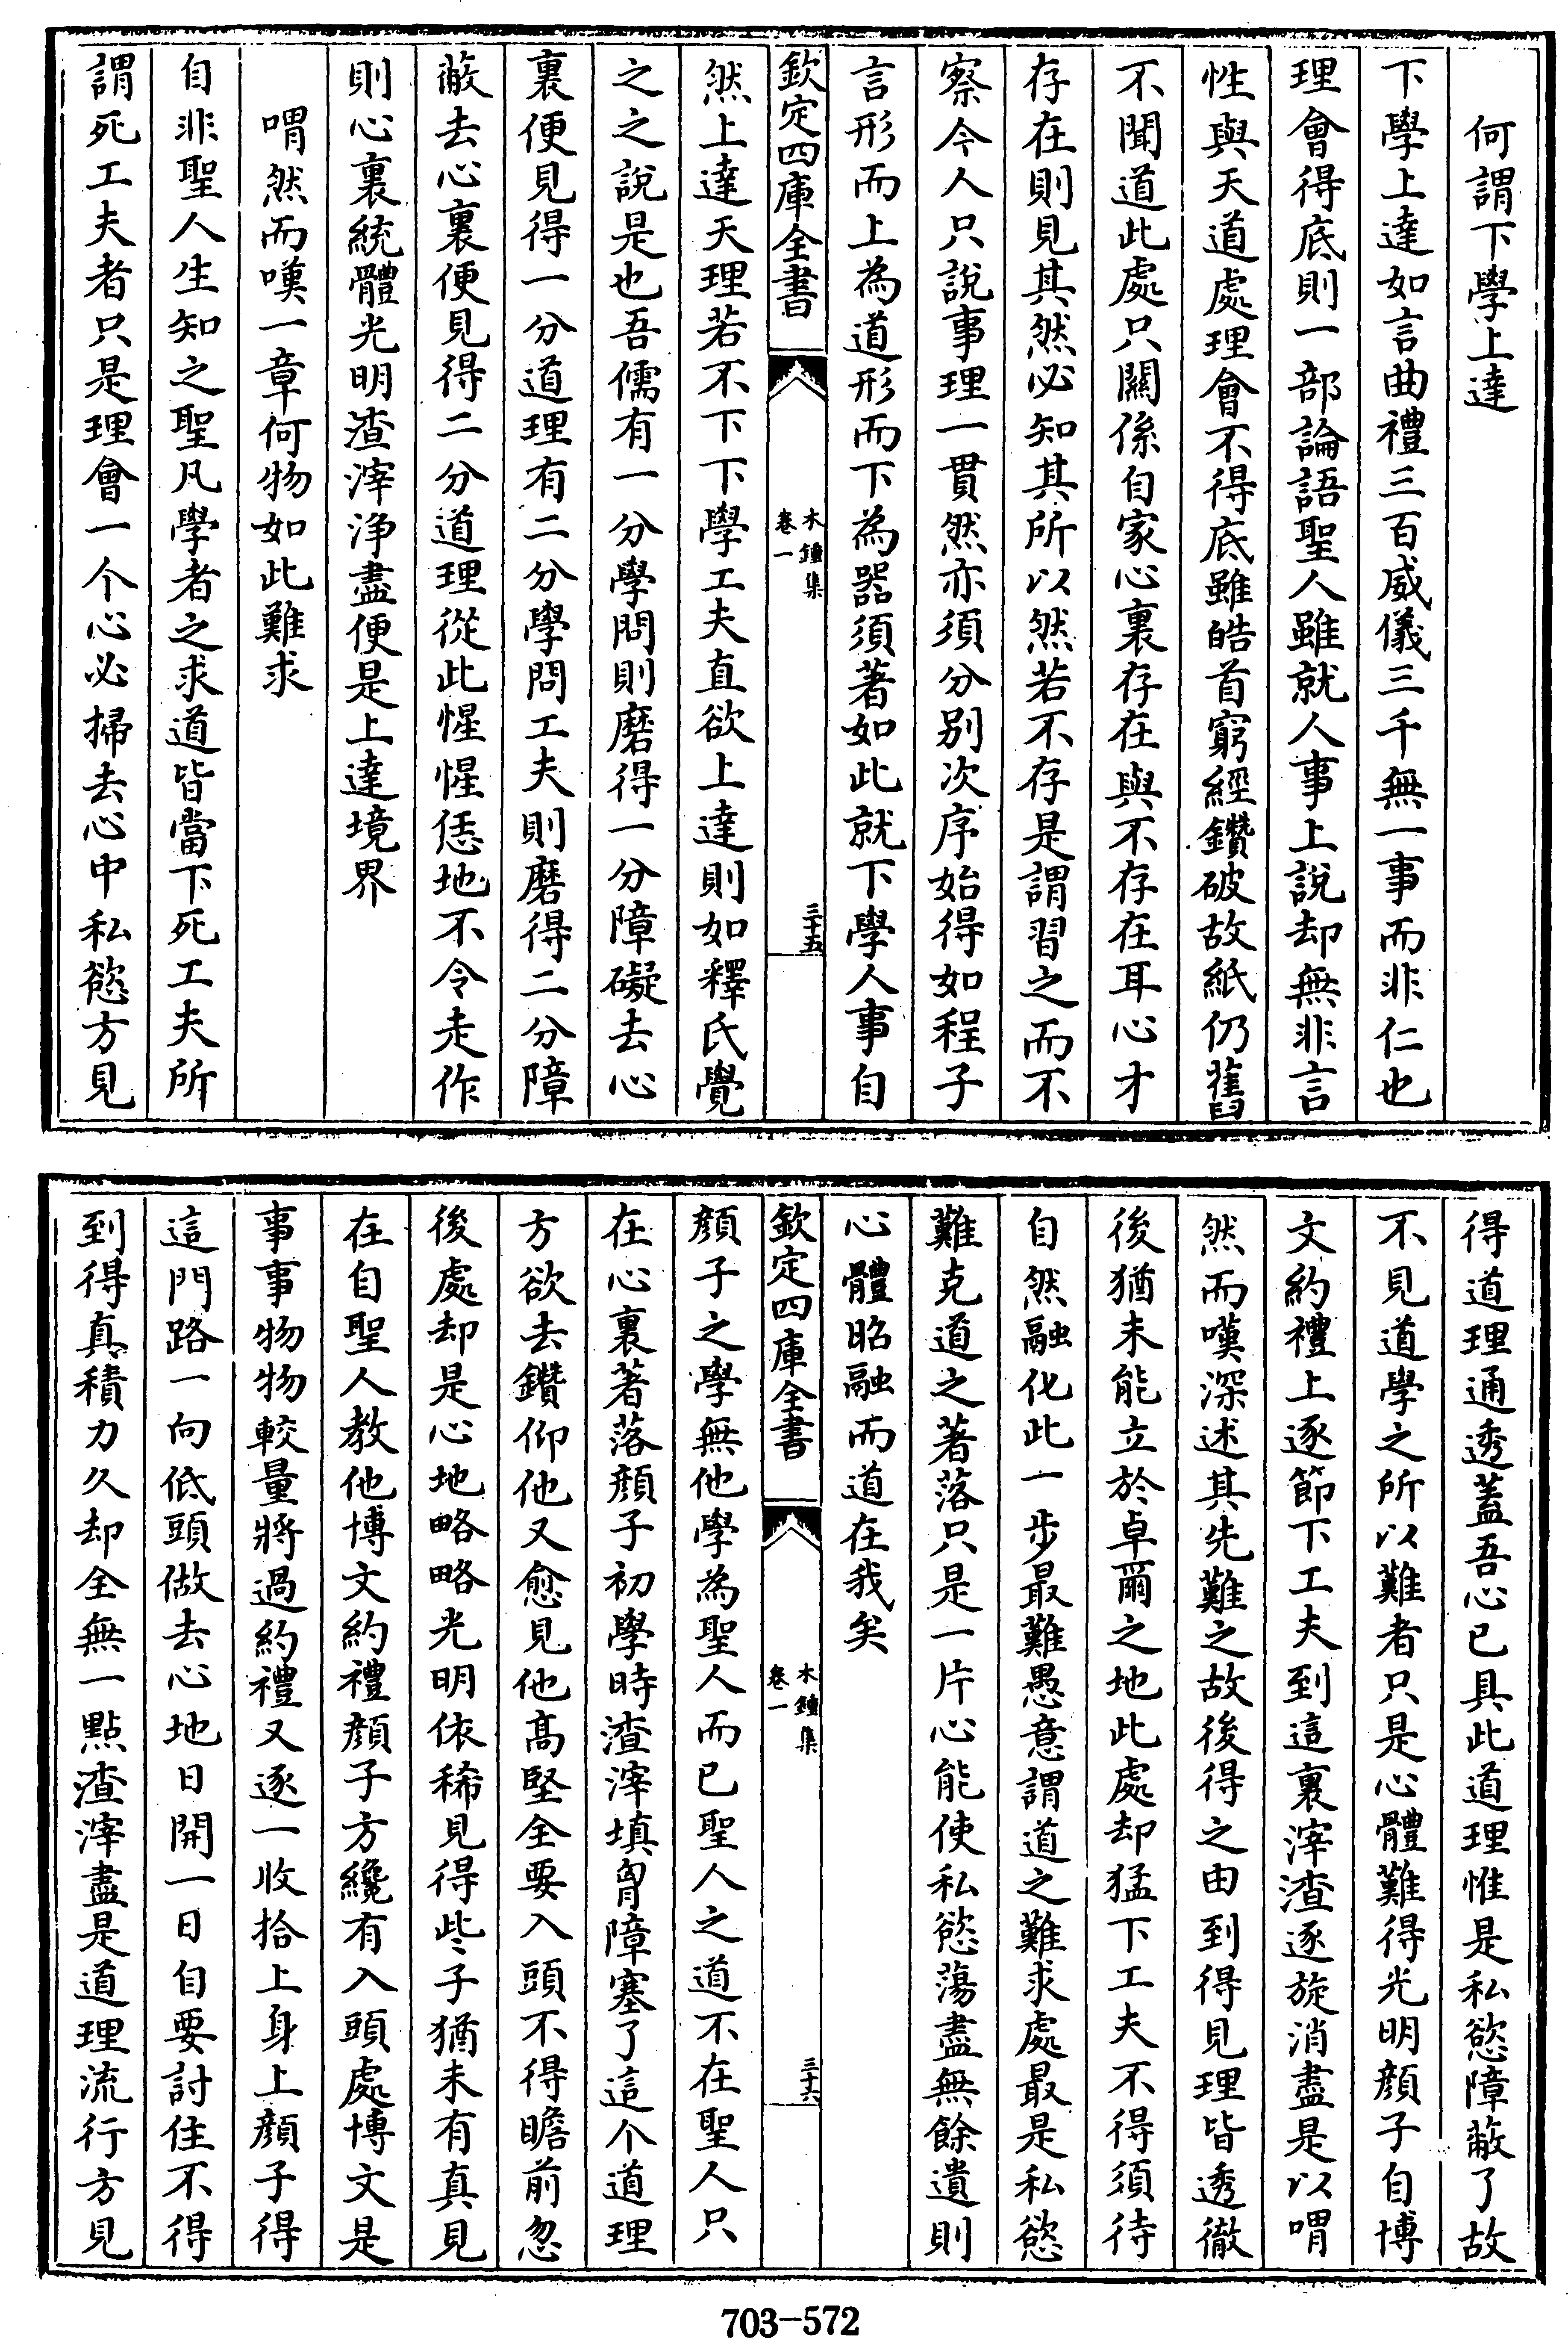 何謂下學上達
下學上達如言曲禮三百威儀三千無一事而非仁也
理會得底則一部論語聖人雖就人事上說却無非言
性與天道處理會不得底雖皓首窮經鑽破故紙仍舊
不聞道此處只關係自家心裏存在與不存在耳心才
存在則見其然必知其所以然若不存是謂習之而不
察今人只說事理一貫然亦須分別次序始得如程子
言形而上為道形而下為器須著如此就下學人事自
欽定四庫全書
木鍾集
卷一
三十五
然上達天理若不下下學工夫直欲上達則如釋氏覺
之之說是也吾儒有一分學問則磨得一分障礙去心
裏便見得一分道理有二分學問工夫則磨得二分障
蔽去心裏便見得二分道理從此惺惺恁地不令走作
則心裏統體光明渣滓淨盡便是上達境界
喟然而嘆一章何物如此難求
自非聖人生知之聖凡學者之求道皆當下死工夫所
謂死工夫者只是理會一个心必掃去心中私慾方見
得道理通透蓋吾心已具此道理惟是私慾障蔽了故
不見道學之所以難者只是心體難得光明顔子自博
文約禮上逐節下工夫到這裏滓渣逐旋消盡是以喟
然而嘆深述其先難之故後得之由到得見理皆透徹
後猶未能立於卓爾之地此處却猛下工夫不得須待
自然融化此一步最難愚意謂道之難求處最是私慾
難克道之著落只是一片心能使私慾蕩盡無餘遺則
心體昭融而道在我矣
欽定四庫全書
木鍾集
卷一
三十六
顔子之學無他學為聖人而已聖人之道不在聖人只
在心裏著落顔子初學時渣滓填胷障塞了這个道理
方欲去鑽仰他又愈見他髙堅全要入頭不得瞻前忽
後處却是心地略略光明依稀見得些子猶未有真見
在自聖人教他博文約禮顔子方纔有入頭處博文是
事事物物較量將過約禮又逐一收拾上身上顔子得
這門路一向低頭做去心地日開一日自要討住不得
到得真積力久却全無一點渣滓盡是道理流行方見
703-572